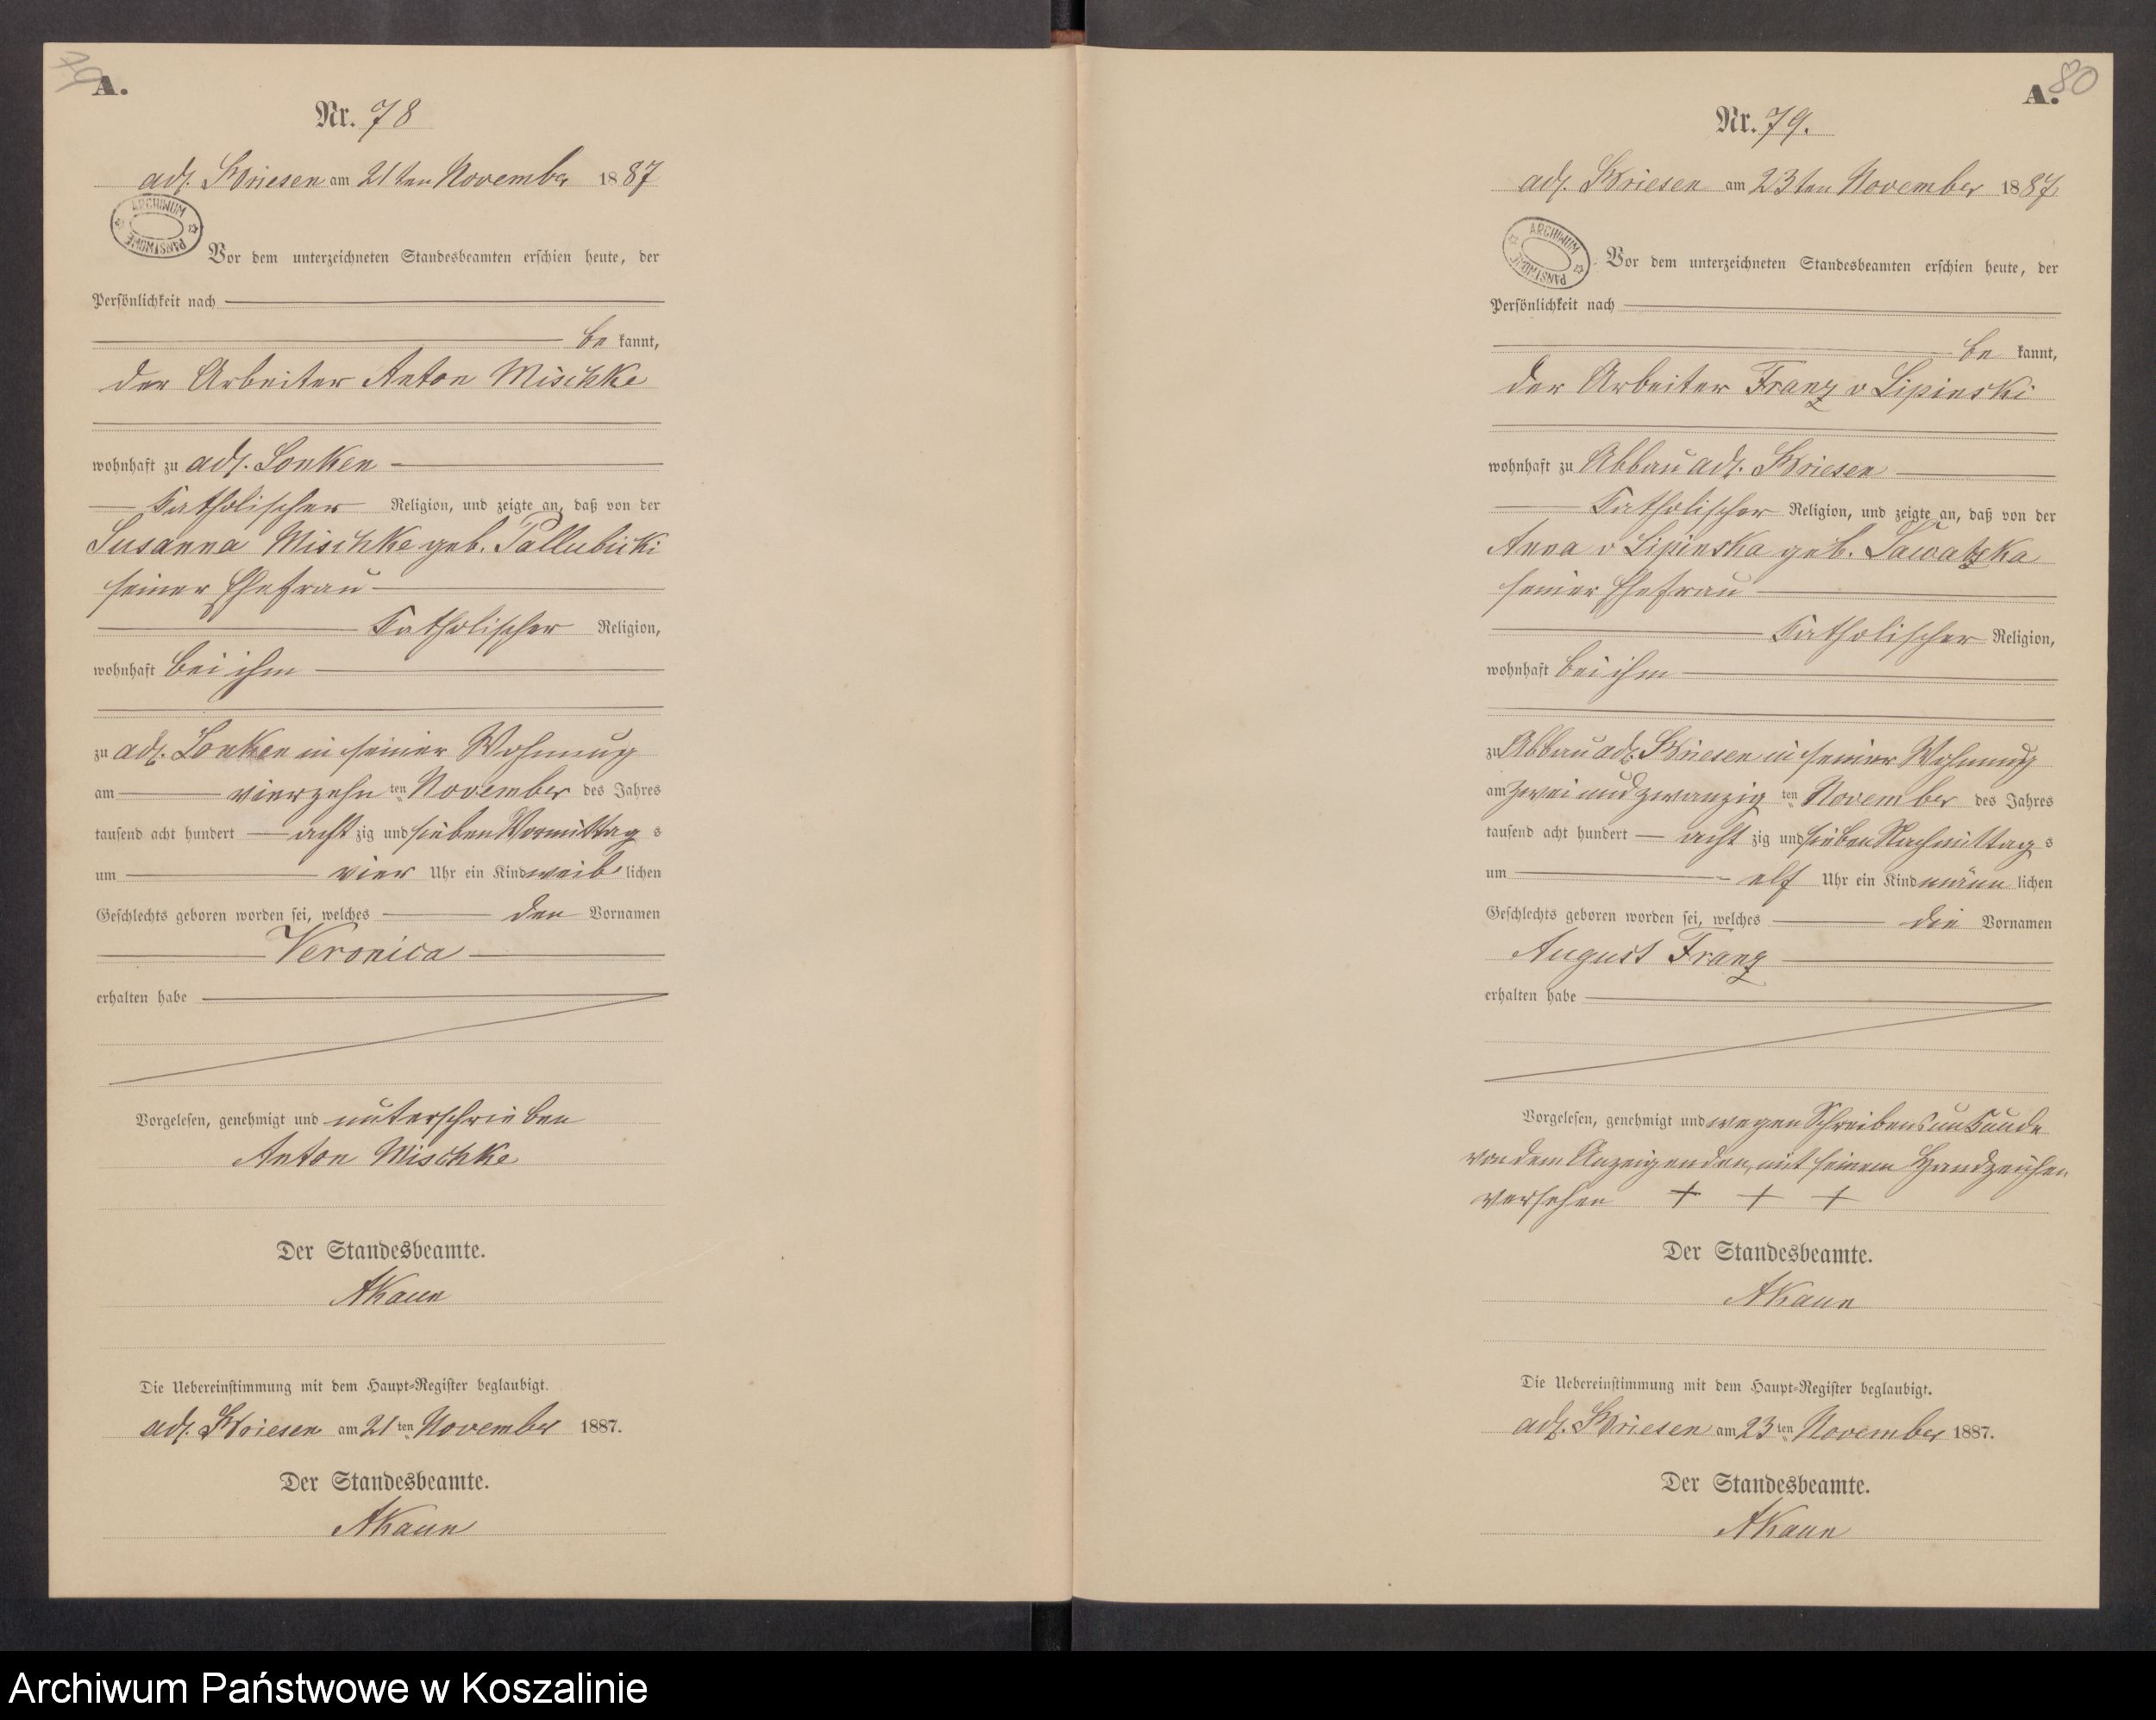 79
A.
Nr. 78
adl. Briesen am 21ten November 1887
ARCHIWUM PAŃSTWOWE
Vor dem unterzeichneten Standesbeamten erschien heute, der
Persönlichkeit nach
be kannt,
der Arbeiter Anton Mischke
wohnhaft zu adl. Lonken
katholischer Religion, und zeigte an, daß von der
Susanna Mischke geb. Pallubicki
seiner Ehefrau
katholischer Religion,
wohnhaft bei ihm
zu adl. Lonken in seiner Wohnung
am vierzehn ten November des Jahres
tausend acht hundert acht zig und sieben Vormittag s
um vier Uhr ein Kind weib lichen
Geschlechts geboren worden sei, welches den Vornamen
Veronica
erhalten habe
Vorgelesen, genehmigt und unterschrieben
Anton Mischke
Der Standesbeamte.
AKaun
Die Uebereinstimmung mit dem Haupt-Register beglaubigt.
adl. Briesen am 21 ten November 1887.
Der Standesbeamte.
AKaun
80
A.
Nr. 79.
adl. Briesen am 23ten November 1887
ARCHIWUM PAŃSTWOWE
Vor dem unterzeichneten Standesbeamten erschien heute, der
Persönlichkeit nach
be kannt,
der Arbeiter Franz v Lipinski
wohnhaft zu Abbau adl. Briesen
katholischer Religion, und zeigte an, daß von der
Anna v Lipinska geb. Sawatzka
seiner Ehefrau
katholischer Religion,
wohnhaft bei ihm
zu Abbau adl. Briesen in seiner Wohnung
am zwei und zwanzig ten November des Jahres
tausend acht hundert acht zig und sieben Nachmittag s
um elf Uhr ein Kind männ lichen
Geschlechts geboren worden sei, welches die Vornamen
August Franz
erhalten habe
Vorgelesen, genehmigt und wegen Schreibensunkunde
von dem Anzeigenden, mit seinem Handzeichen
versehen + + +
Der Standesbeamte.
AKaun
Die Uebereinstimmung mit dem Haupt-Register beglaubigt.
adl. Briesen am 23 ten November 1887.
Der Standesbeamte.
AKaun
Archiwum Państwowe w Koszalinie